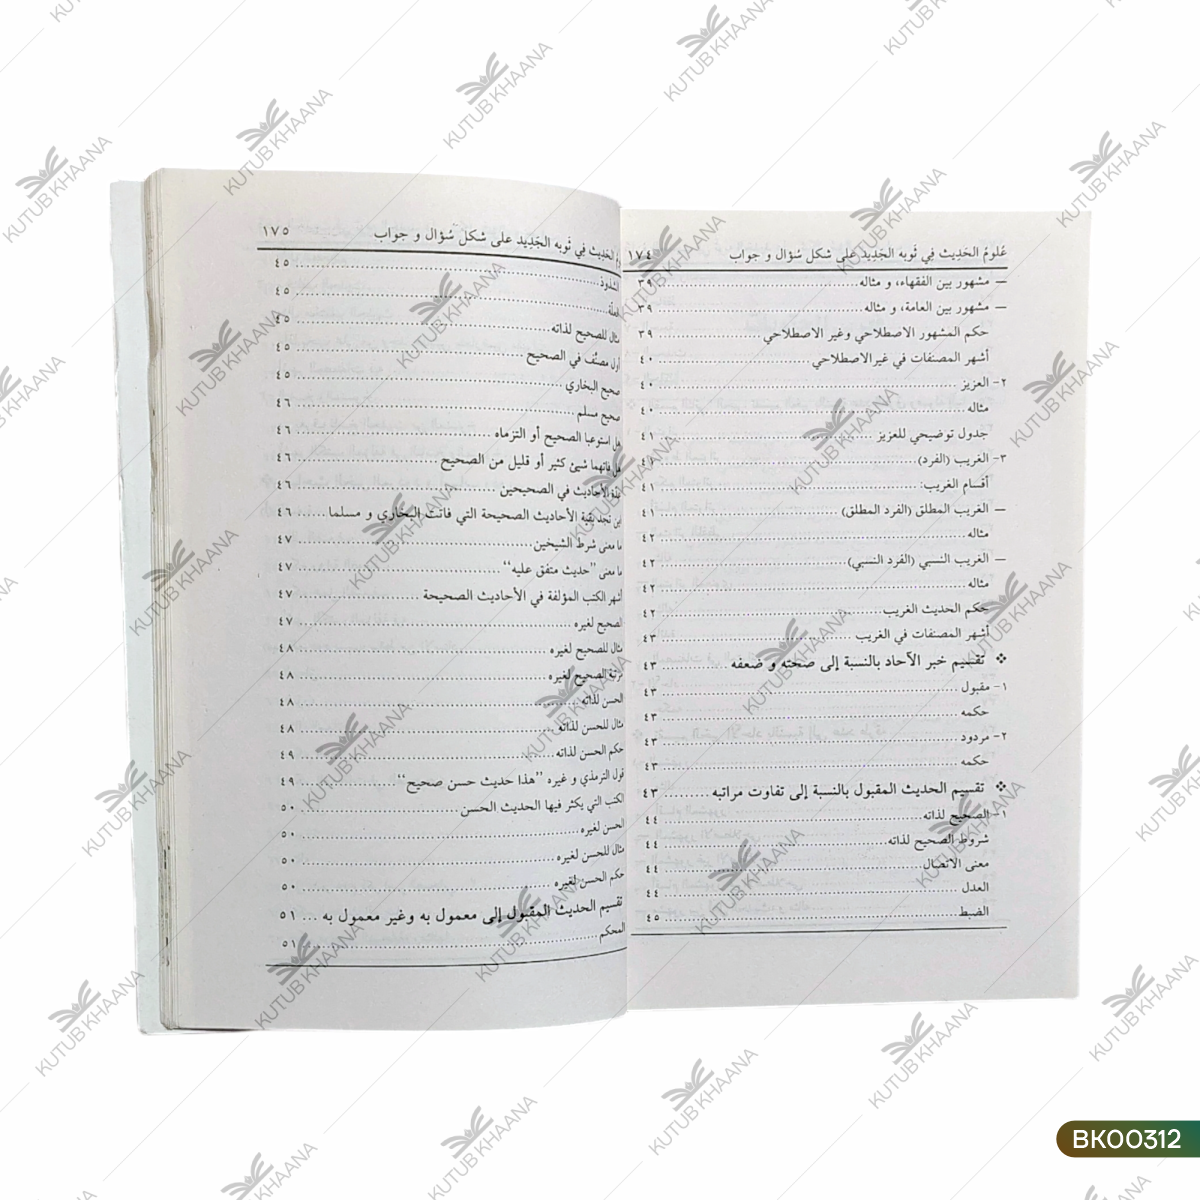 ١٧٤ عُلومُ الحَدِيث فِي ثَوبه الجَدِيد على شكل سُؤال و جواب
— مشهور بين الفقهاء، و مثاله ٣٩
— مشهور بين العامة، و مثاله ٣٩
حكم المشهور الاصطلاحي وغير الاصطلاحي ٣٩
أشهر المصنفات في غير الاصطلاحي ٤٠
٢- العزيز ٤٠
مثاله ٤٠
جدول توضيحي للعزيز ٤١
٣- الغريب (الفرد) ٤١
أقسام الغريب: ٤١
— الغريب المطلق (الفرد المطلق) ٤١
مثاله ٤٢
— الغريب النسبي (الفرد النسبي) ٤٢
مثاله ٤٢
حكم الحديث الغريب ٤٢
أشهر المصنفات في الغريب ٤٣
❖ تقسيم خبر الآحاد بالنسبة إلى صحته و ضعفه ٤٣
١- مقبول ٤٣
حكمه ٤٣
٢- مردود ٤٣
حكمه ٤٣
❖ تقسيم الحديث المقبول بالنسبة إلى تفاوت مراتبه ٤٣
١- الصحيح لذاته ٤٤
شروط الصحيح لذاته ٤٤
معنى الاتصال ٤٤
العدل ٤٤
الضبط ٤٥
١٧٥ الحَدِيث فِي ثَوبه الجَدِيد على شكل سُؤال و جواب
الشذوذ ٤٥
العلة ٤٥
مثال للصحيح لذاته ٤٥
أول مصنّف في الصحيح ٤٥
صحيح البخاري ٤٥
صحيح مسلم ٤٦
هل استوعبا الصحيح أو التزماه ٤٦
هل فاتهما شيئ كثير أو قليل من الصحيح ٤٦
عدة الأحاديث في الصحيحين ٤٦
أين نجد بقية الأحاديث الصحيحة التي فاتت البخاري و مسلما ٤٦
ما معنى شرط الشيخين ٤٧
ما معنى "حديث متفق عليه" ٤٧
أشهر الكتب المؤلفة في الأحاديث الصحيحة ٤٧
الصحيح لغيره ٤٧
مثال للصحيح لغيره ٤٨
مرتبة الصحيح لغيره ٤٨
الحسن لذاته ٤٨
مثال للحسن لذاته ٤٨
حكم الحسن لذاته ٤٩
قول الترمذي و غيره "هذا حديث حسن صحيح" ٤٩
الكتب التي يكثر فيها الحديث الحسن ٥٠
الحسن لغيره ٥٠
مثال للحسن لغيره ٥٠
حكم الحسن لغيره ٥٠
تقسيم الحديث المقبول إلى معمول به وغير معمول به ٥١
المحكم ٥١
KUTUB KHAANA
BK00312